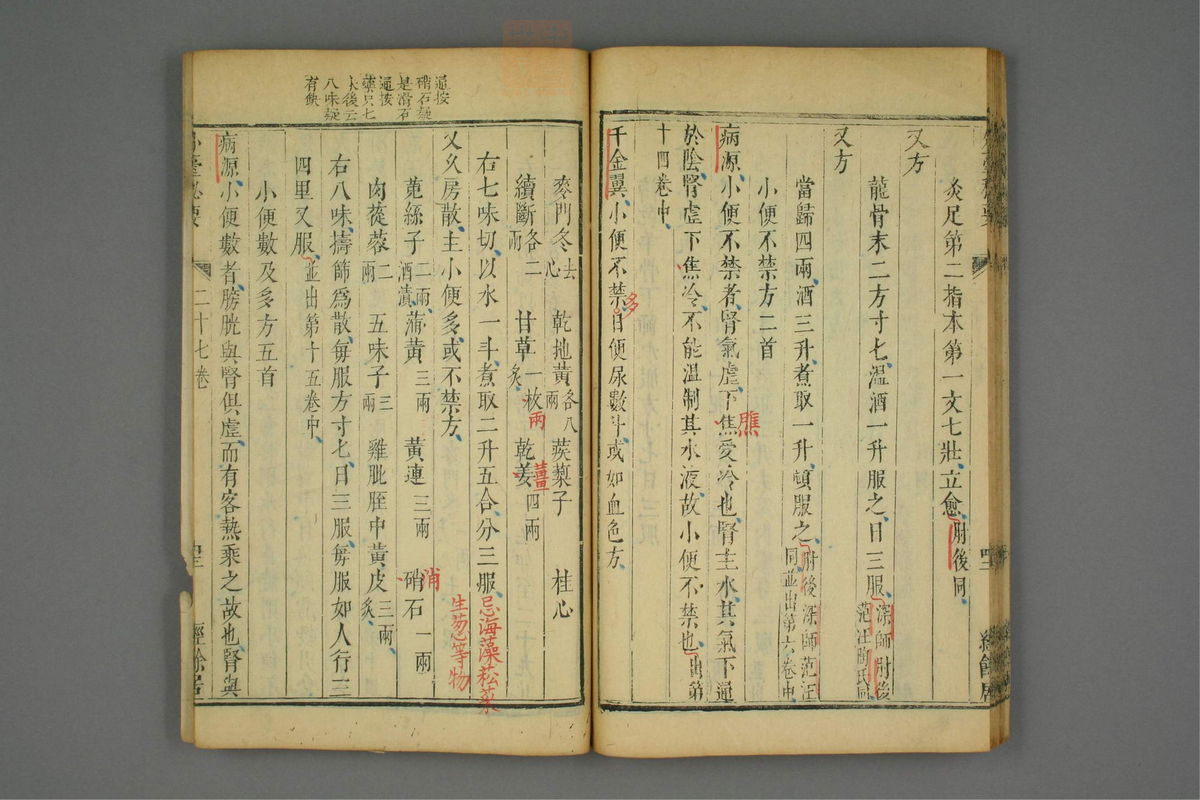 灸足第二指本第一文七壯立愈肘後同
又方
龍骨末二方寸匕溫酒一升服之日三服深師肘後
范汪陶氏同
又方
當歸四兩酒三升煮取一升頓服之肘後深師范汪
同並出第六卷中
小便不禁方二首
病源小便不禁者腎氣虛下焦受冷也腎主水其氣下通
膲
於陰腎虛下焦冷不能溫制其水液故小便不禁也出第
十四卷中
千金翼小便不禁日便尿數斗或如血色方
多
麥門冬去心 乾地黃各八兩 蒺䔧子 桂心
續斷各二兩 甘草一枚炙 乾姜四兩
兩
薑
右七味切以水一斗煮取二升五合分三服忌海藻菘菜
生葱等物
又久房散主小便多或不禁方
菟絲子二兩酒漬 蒲黃三兩 黃連三兩 硝石一兩
消
肉蓯蓉二兩 五味子三兩 雞肶胵中黃皮三兩炙
右八味擣篩爲散每服方寸匕日三服每服如人行三
四里又服並出第十五卷中
小便數及多方五首
病源小便數者膀胱與腎俱虛而有客熱乘之故也腎與
二十七卷
經餘居
逼按
硝石疑
是滑石
逼按
藥只七
味後云
八味疑
有缺